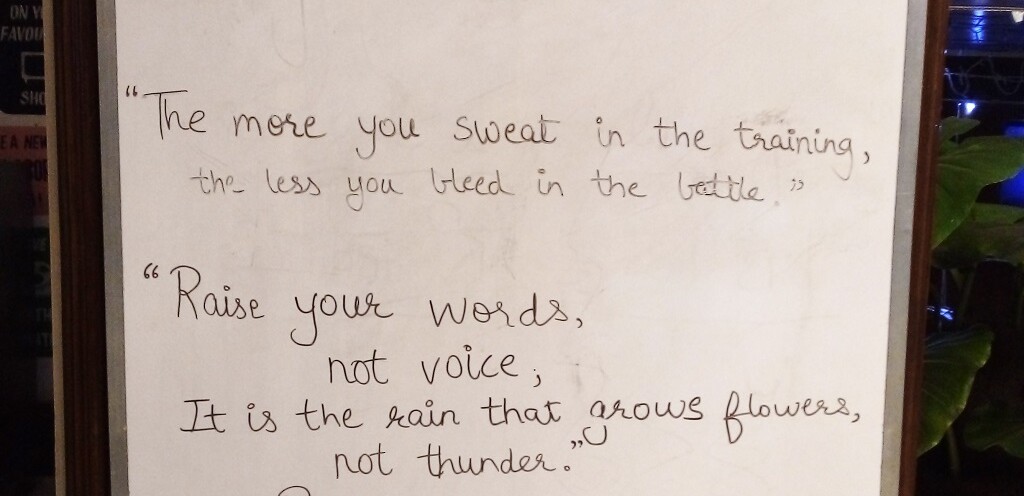 ON
SHO
E A NEW
"The more you sweat in the training,
the less you bleed in the battle."
"Raise your words,
not voice;
It is the rain that grows flowers,
not thunder."